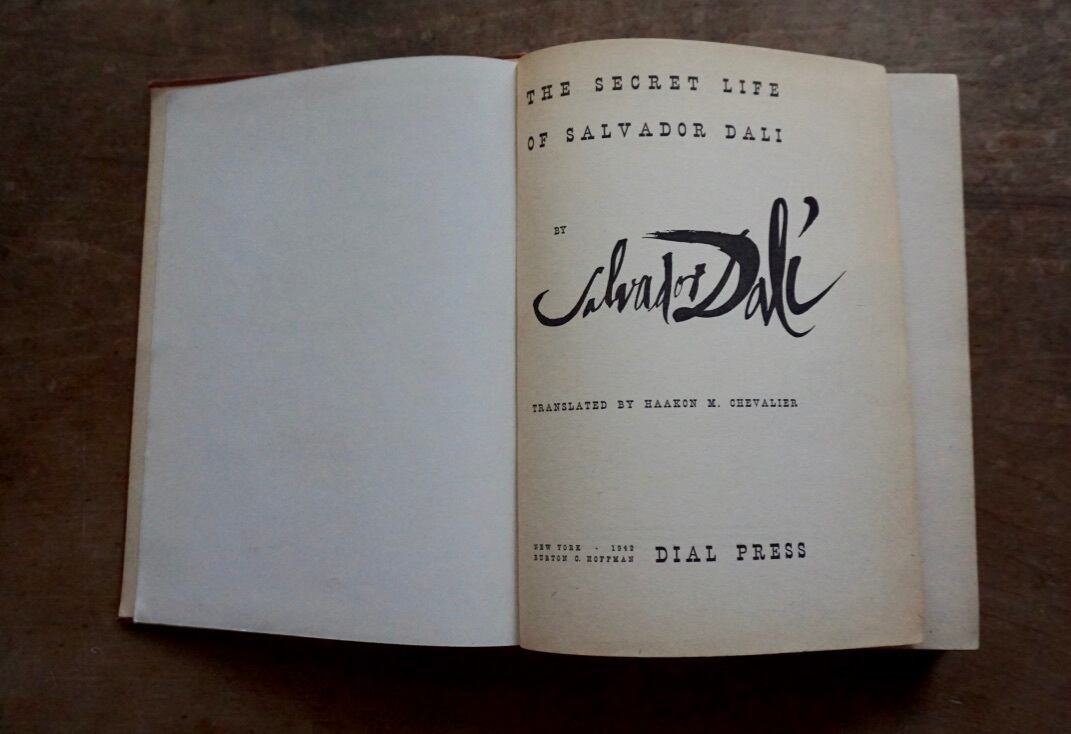 THE SECRET LIFE
OF SALVADOR DALI
BY
Salvador Dalí
TRANSLATED BY HAAKON M. CHEVALIER
NEW YORK - 1942
BURTON C. HOFFMAN
DIAL PRESS